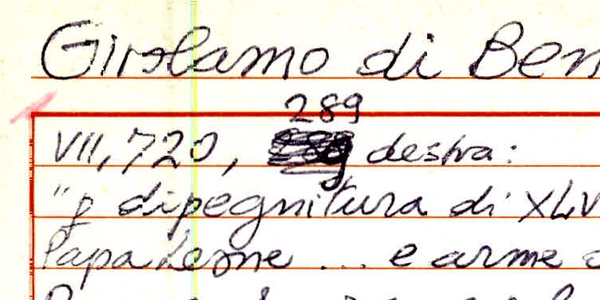 Girolamo di Ben
289
VII, 720, destra:
"p dipegnitura di XLV
Papa Leone ... e arme